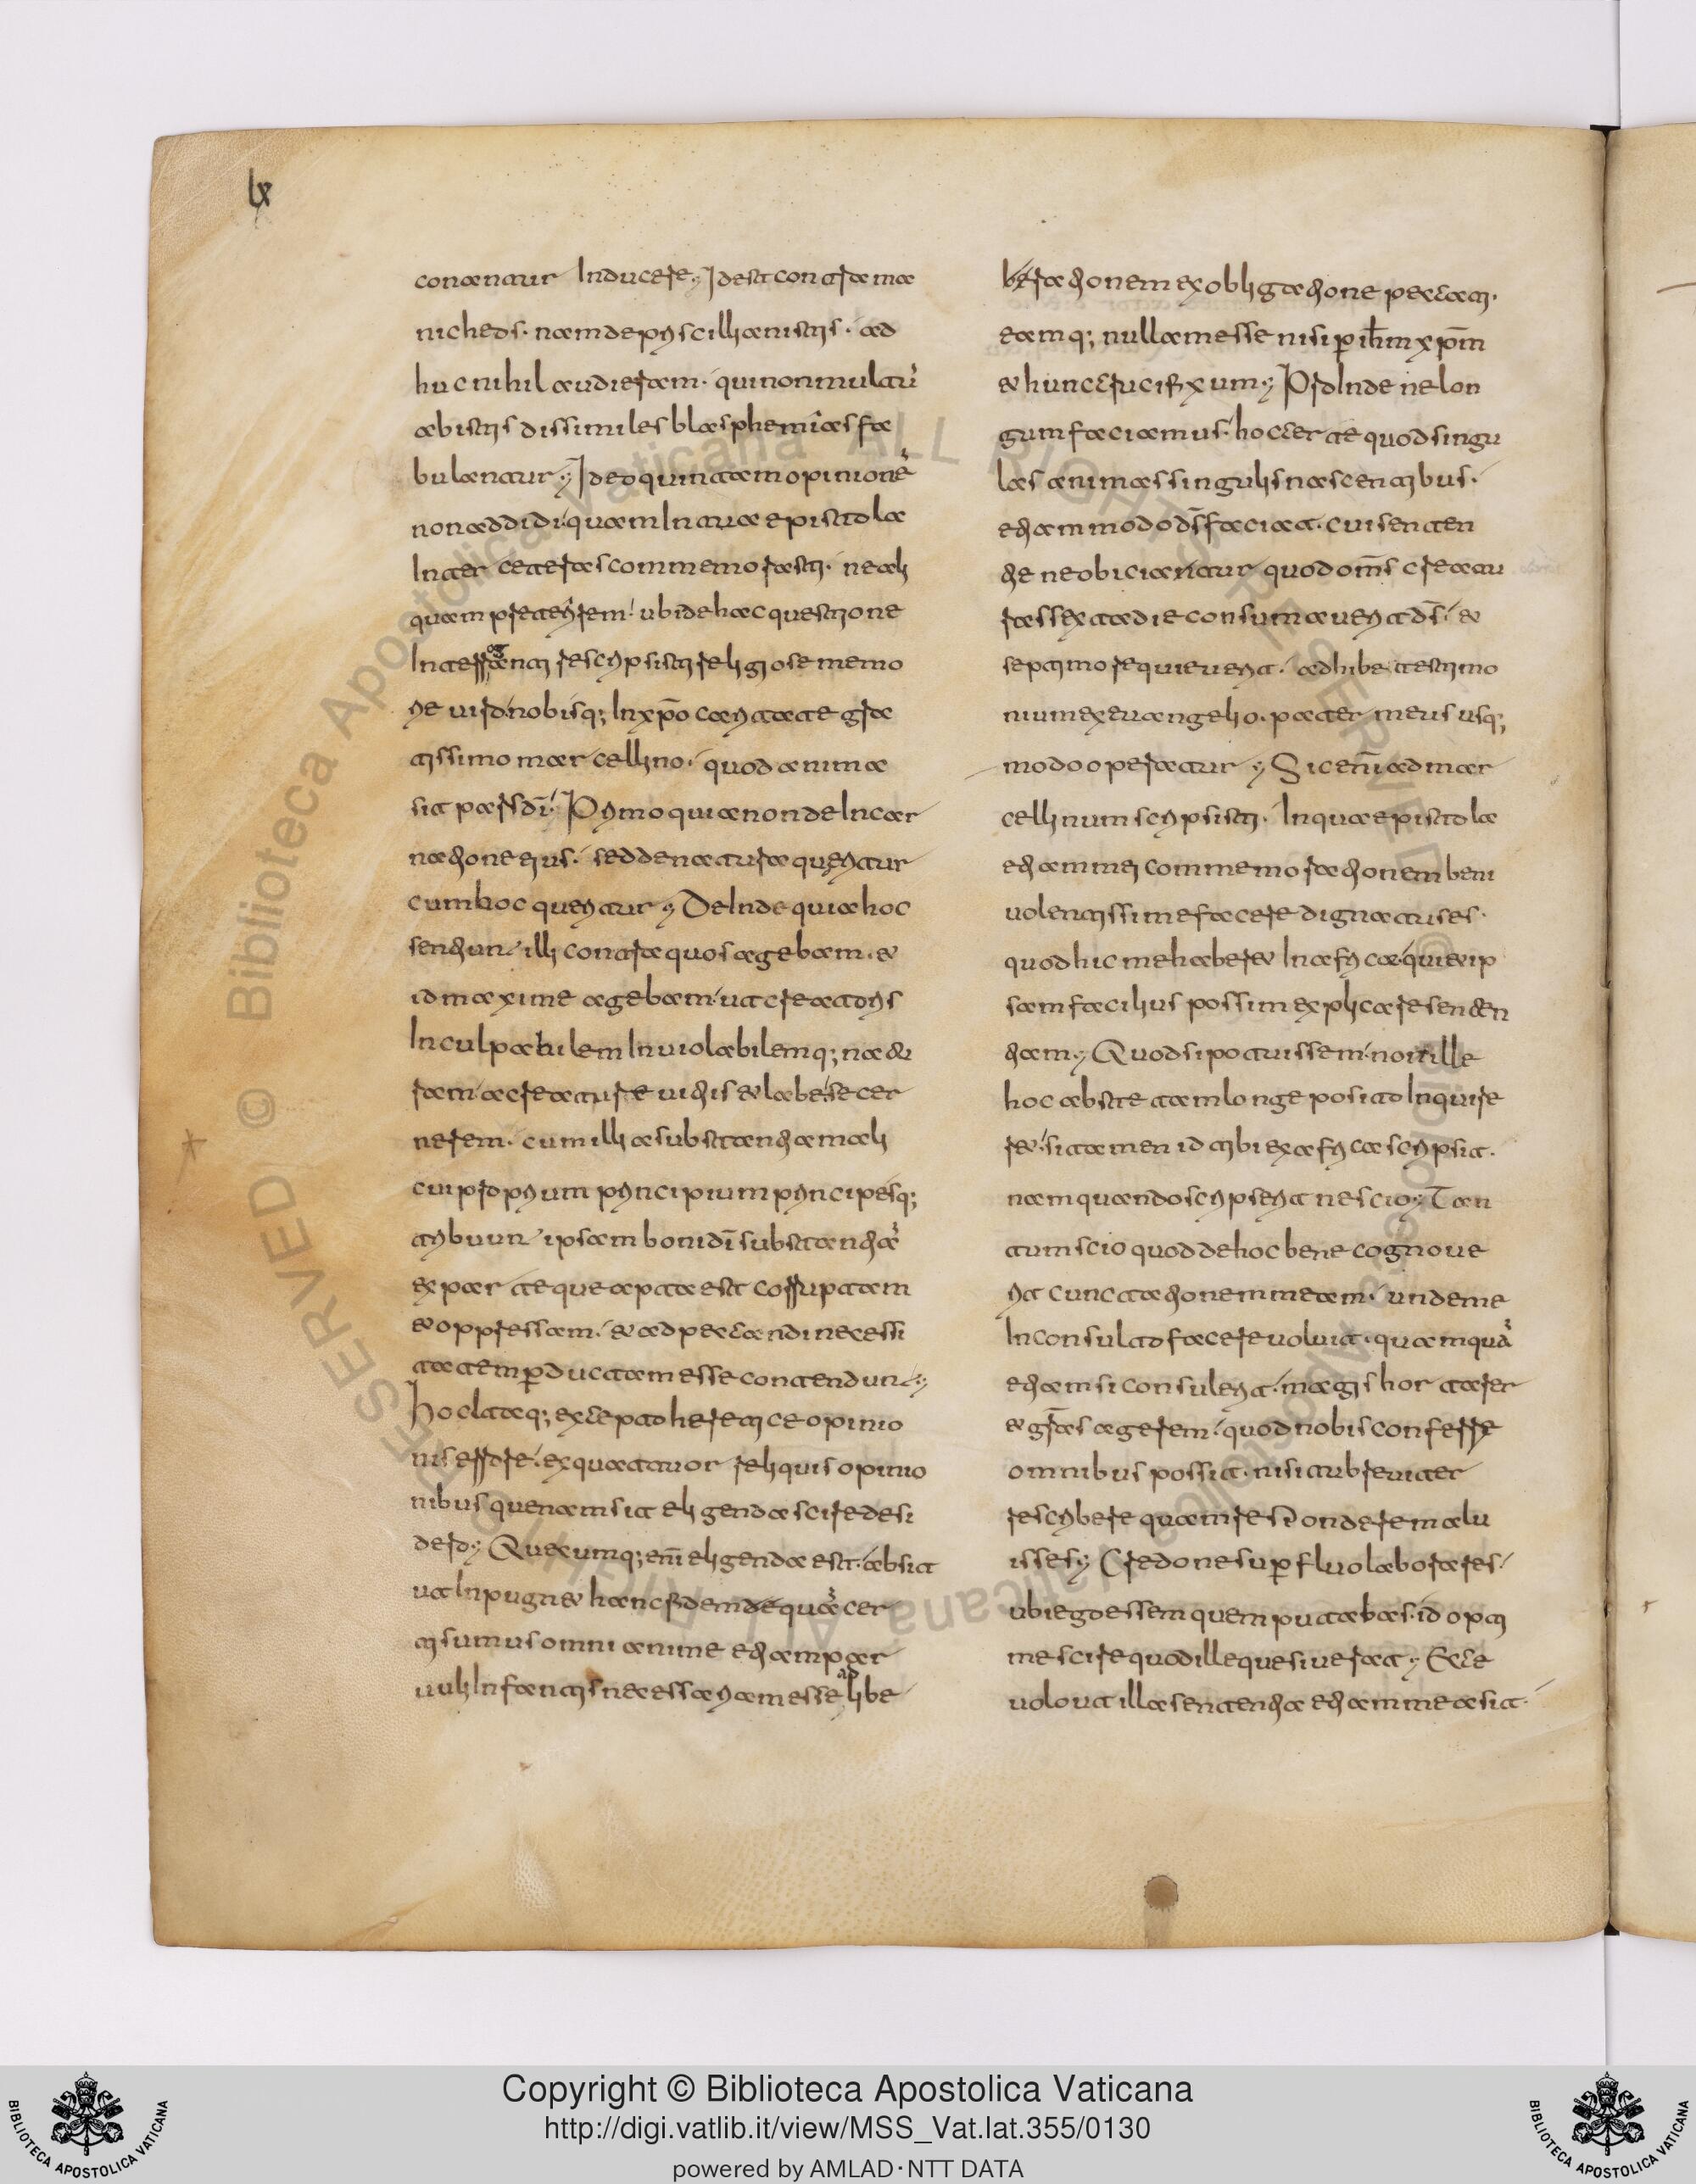 lx
conantur Inducere; Idest contra ma
nicheos. nam de priscillianistis. ad
huc nihil audieram. qui non multũ
ab istis dissimiles blasphemias fa
bulantur; Ideo quintam opinionẽ
non addidi. quam In tua epistola
Inter ceteras commemorasti. ne ali
quam preterirem. ubi de hac questione
Interroganti rescripsisti religiose memo
rie uiro. nobisq; In xp̄o caritate gra
tissimo marcellino. quod anima
sit pars dī. Primo quia non de Incar
natione eius. sed de natura queritur
cum hoc queritur; DeInde quia hoc
sentiunt illi contra quos agebam. et
id maxime agebam. ut creatoris
Inculpabilem Inuiolabilemq; natu
ram a creature uitiis et labe secer
nerem. cum illi a substantia mali
cui proprium principium principesq;
tribuunt ipsam boni dī substantiã
ex parte que capta est corruptam
et oppressam. et ad peccandi necessi
tatem p̱ductam esse contendunt;
Hoc Itaq; excepto heretice opinio
nis errore. ex quattuor reliquis opinio
nibus quenam sit eligenda scire desi
dero; Quecumq; enī eligenda est. absit
ut Inpugnet hanc fidem de quã cer
ti sumus omni anime etiam par
uuli Infantis necessariam esse libe
berationem ex obligatione peccati.
eamq; nullam esse nisi p̱ ih̄m xp̄m
et hunc crucifixum; ProInde ne lon
gum faciamus. hoc certe quod singu
las animas singulis nascentibus.
etiam modo ds̄ faciat. cui senten
tie ne obiciantur quod om̄s creatu
ras sexta die consumauerit ds̄. et
septimo requieuerit. adhibe testimo
nium ex euangelio. pater meus usq;
modo operatur; Sic enī ad mar
cellinum scripsisti. In qua epistola
etiam mei commemorationem beni
uolentissime facere dignatus es.
quod hic me haberet In africa. qui et ip
sam facilius possim explicare senten
tiam; Quod si potuissem. non ille
hoc abs te tam longe posito Inquire
ret. si tamen id tibi ex africa scripsit.
nam quando scripserit nescio; Tan
tum scio quod de hoc bene cognoue
rit cunctationem meam. unde me
Inconsulto facere uoluit. quamquã
etiam si consulerit. magis hortarer
et grās agerem. quod nobis conferre
omnibus possit. nisi tu breuiter
rescribere quam respondere malu
isses; Credo ne sup̱fluo laborares.
ubi ego essem quem putabas. id opti
me scire quod ille quesiuerat; Ecce
uolo ut illa sententia etiam mea sit.
Copyright © Biblioteca Apostolica Vaticana
http://digi.vatlib.it/view/MSS_Vat.lat.355/0130
powered by AMLAD·NTT DATA
BIBLIOTECA APOSTOLICA VATICANA
BIBLIOTECA APOSTOLICA VATICANA